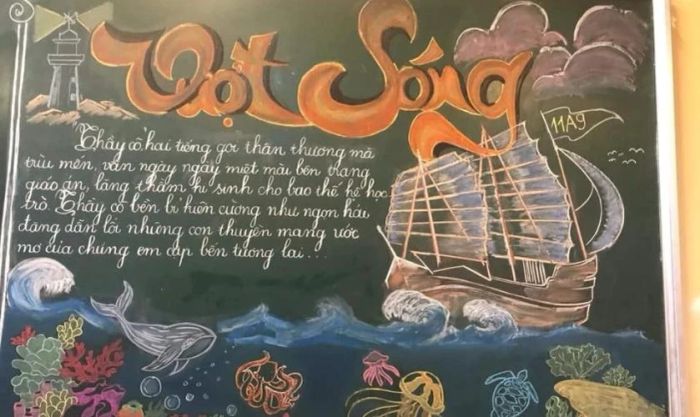 Vượt Sóng
11A9
"Thầy cô" hai tiếng gọi thân thương mà
trìu mến, vẫn ngày ngày miệt mài bên trang
giáo án, lặng thầm hi sinh cho bao thế hệ học
trò. Thầy cô bền bỉ kiên cường như ngọn hải
đăng dẫn lối những con thuyền mang ước
mơ của chúng em cập bến tương lai...